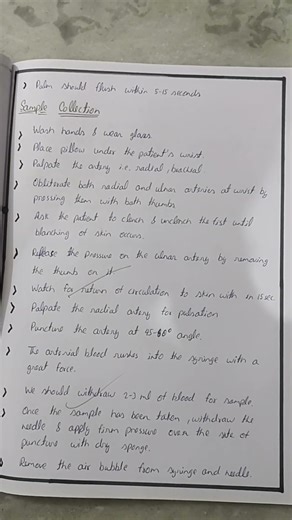 > Palm should flush within 5-15 seconds
Sample Collection
> Wash hands & wear gloves.
> Place pillow under the patient's wrist.
> Palpate the artery i.e. radial, brachial.
> Obliterate both radial and ulnar arteries at wrist by
pressing them with both thumbs
> Ask the patient to clench & unclench the fist until
blanching of skin occurs.
> Release the pressure on the ulnar artery by removing
the thumb on it
> Watch for return of circulation to skin with in 15sec.
> Palpate the radial artery for pulsation
> Puncture the artery at 45-60° angle.
> The arterial blood rushes into the syringe with a
great force.
> We should withdraw 2-3 ml of blood for sample.
> Once the sample has been taken, withdraw the
needle & apply firm pressure over the site of
puncture with dry sponge.
> Remove the air bubble from syringe and needle.